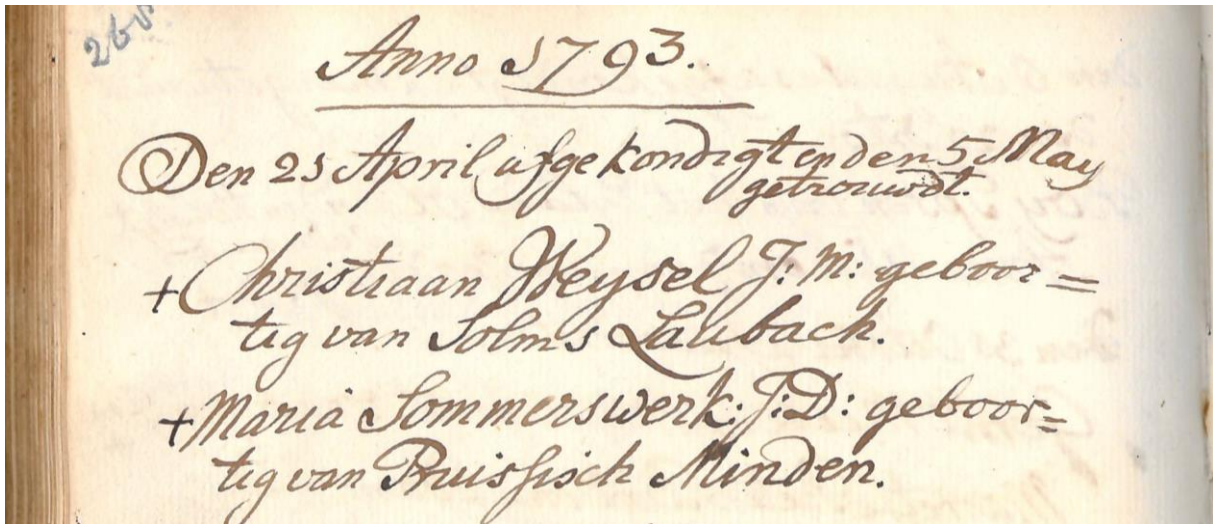 Anno 1793.
Den 21 April afgekondigt en den 5 May
getrouwdt.
+ Christiaan Weysel J: M: geboor=
tig van Solms Laubach.
+ Maria Sommerswerk: J: D: geboor=
tig van Pruissisch Minden.